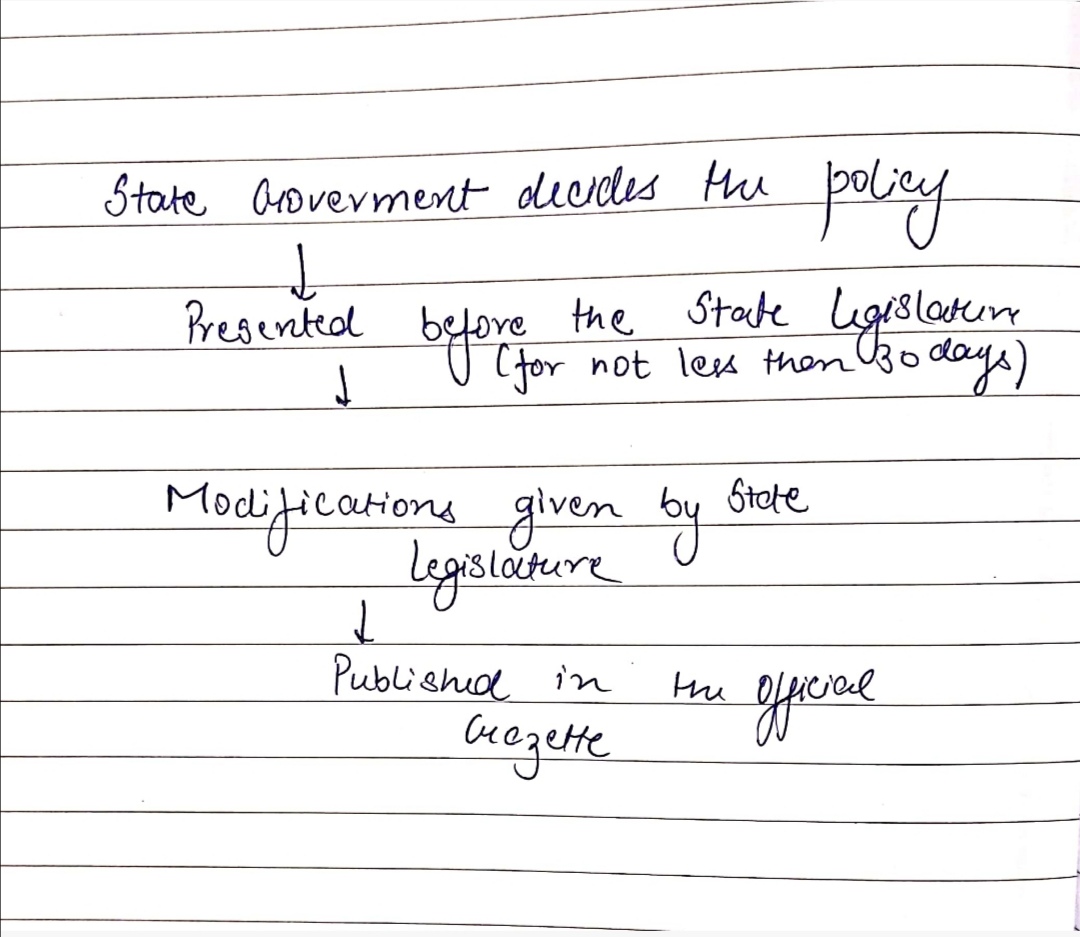 State Goverment decides the policy
↓
Presented before the State legislature
(for not less than 30 days)
↓
Modifications given by State
legislature
↓
Published in the official
Gazette